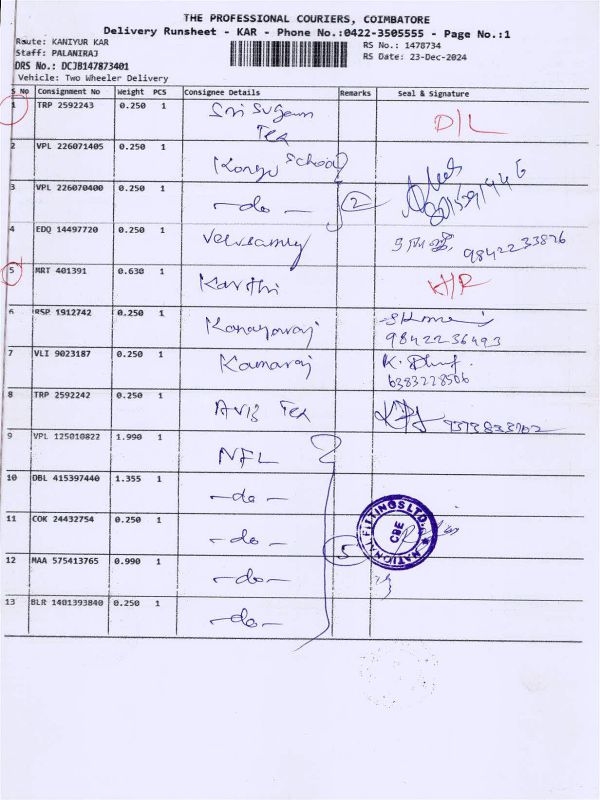 THE PROFESSIONAL COURIERS, COIMBATORE
Delivery Runsheet - KAR - Phone No.:0422-3505555 - Page No.:1
Route: KANIYUR KAR
RS No.: 1478734
Staff: PALANIRAJ
RS Date: 23-Dec-2024
DRS No.: DCJB147873401
Vehicle: Two Wheeler Delivery
S No Consignment No Weight PCS Consignee Details Remarks Seal & Signature
1 TRP 2592243 0.250 1 Sri Sugam Tex D/L
2 VPL 226071405 0.250 1 Kongu School
3 VPL 226070400 0.250 1 -do- 2
4 EDQ 14497720 0.250 1 Velusamy 9842233826
5 MRT 401391 0.630 1 Karthi
6 RSP 1912742 0.250 1 Kanagaraj 9842236493
7 VLI 9023187 0.250 1 Kamaraj 6383228506
8 TRP 2592242 0.250 1 Tex
9 VPL 125010822 1.990 1 NFL
10 DBL 415397440 1.355 1 -do-
11 COK 24432754 0.250 1 -do- 5 NATIONAL FITTINGS LTD. CBE
12 MAA 575413765 0.990 1 -do-
13 BLR 1401393840 0.250 1 -do-